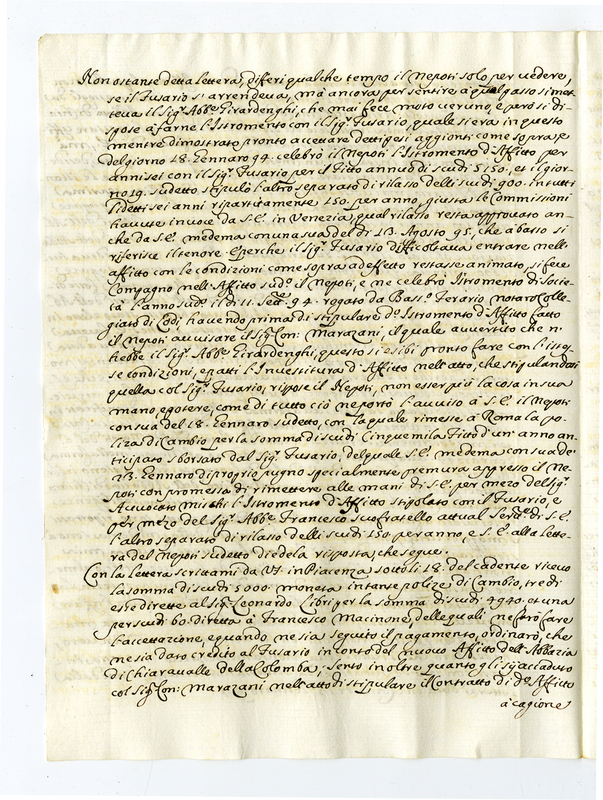 Non ostante detta lettera, diferì qualche tempo il Nepoti solo per vedere,
se il Fusario s'arrendeva, mà ancora per sentire à qual passo si met
teva il Sig.r Abb.e Girardenghi, che mai fece moto veruno, e però si di-
spose à farne l'Istromento con il Sig.r Fusario, quale si era in questo
mentre dimostrato pronto accettare detti pesi aggionti come sopra, e
del giorno 18. Gennaro 94. celebrò il Nepoti l'Istromento d'Affitto per
anni sei con il Sig.r Fusario per il Fitto annuo di scudi 5150, et il gior-
no 19. sudetto stipulò l'altro separato di rilasso delli scudi 900. in tutti
li detti sei anni ripartitamente 150. per anno, giusta le Commissioni
havute in voce da S.E. in Venezia, qual rilasso resta approvato an-
che da S.E. medema con una sua del dì 13. Agosto 95, che à basso si
riferisce il tenore. E perche il Sig.r Fusario difficoltava entrare nell'
affitto con le condizioni come sopra, ad effetto restasse animato, si fece
Compagno nell'Affitto sud.o il Nepoti, e ne celebrò Istromento di Socie-
tà l'anno sud.o il dì 11. 94. rogato da Bast.o Terario notaro Colle-
giato di Lodi, havendo prima di stipulare d.o Istromento d'Affitto fatto
il Nepoti avvisare il Sig. Con: Marazani, il quale avvertito che n'
hebbe il Sig.r Abb.e Girardenghi, questo si esibì pronto fare con l'istes-
se condizioni, e patti l'Investitura d'Affitto nell'atto, che stipulandosi
quella col Sig.r Fusario, rispose il Nepoti, non esser più la cosa in sua
mano, e potere, come di tutto ciò ne portò l'avviso à S.E. il Nepoti
con sua del 18. Gennaro sudetto, con la quale rimesse à Roma la po-
liza di Cambio per la somma di scudi Cinque mila Fitto d'un'anno an-
ticipato sborsato dal Sig.r Fusario, del quale S.E. medema con sua de'
23. Gennaro di proprio pugno specialmente premura appresso il Ne-
poti con promessa di rimettere alle mani di S.E. per mezo del Sig.r
Avvocato Mischi l'Istromento d'Affitto stipolato con il Fusario, e
per mezo del Sig.r Abb.e Francesco suo fratello attual di S.E.
l'altro separato di rilasso delli scudi 150 per anno, e S.E. alla lette-
ra del Nepoti sudetto diede la risposta, che segue.
Con la lettera scrittami da VS. in Piacenza sotto li 18. del cadente ricevo
la somma di scudi 5000. moneta in tante polize di Cambio, tre di
esse dirette al Sig.r Leonardo Libri per la somma di scudi 4940. et una
per scudi 60. diretta à Francesco Macinone, delle quali ne farò fare
l'accettazione, e quando ne sia seguito il pagamento, ordinarò, che
ne sia dato credito al Fusario in conto del nuovo Affitto dell'Abbazia
di Chiaravalle della Colomba; sento in oltre quanto gli sij accaduto
col Sig. Con: Marazani nell'atto di stipulare il Contratto di d.o Affitto
à cagione